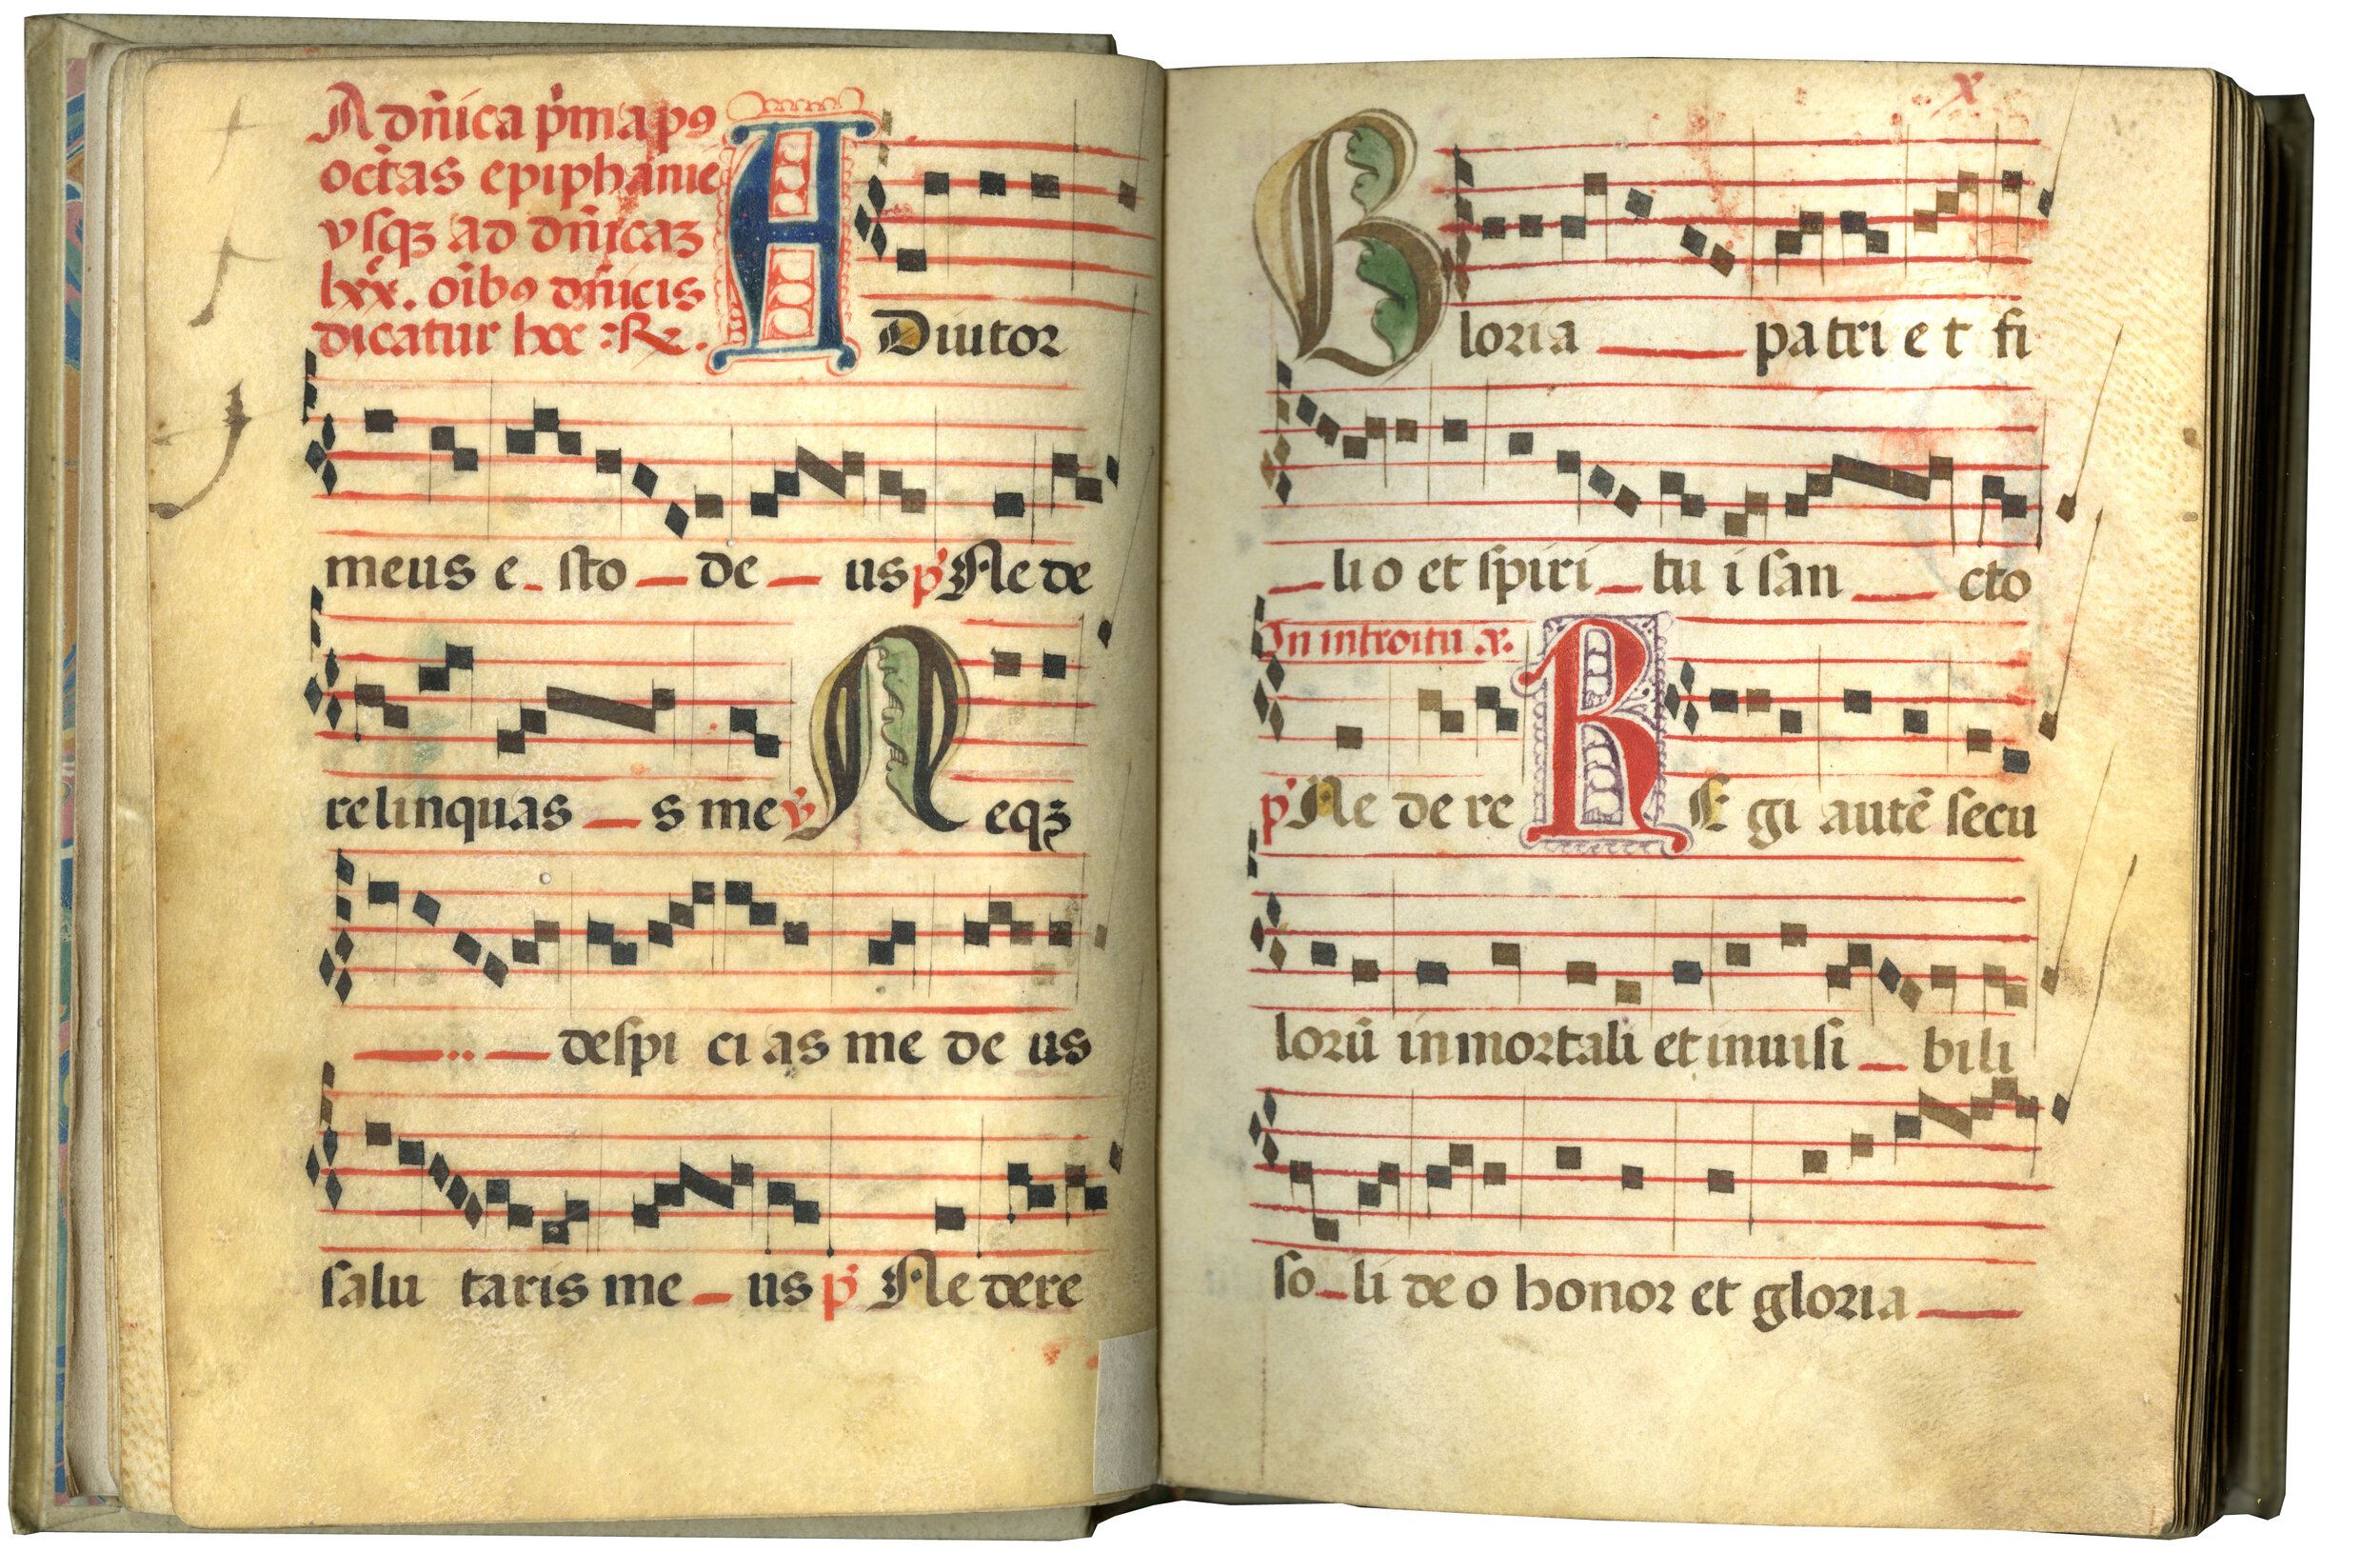 A dñica p̃ma apꝯ
octãs epiphanie
vsqꝫ ad dñicaꝫ
lxx. oĩbꝯ dñicis
dicatur hoc :℟.
A Diutor
meus e_sto — de — us p̃ Ne de
relinquas — s me ℣ N eqꝫ
— .. — despi ci as me de us
salu taris me — us p̃ Ne dere
x
G loria — patri e t fi
— li o et spiri — tu i san — cto
In introitu ℣.
p̃ Ne de re R E gi autẽ secu
lorũ inmortali et inuisi — bili
so_li de o honor et gloria —